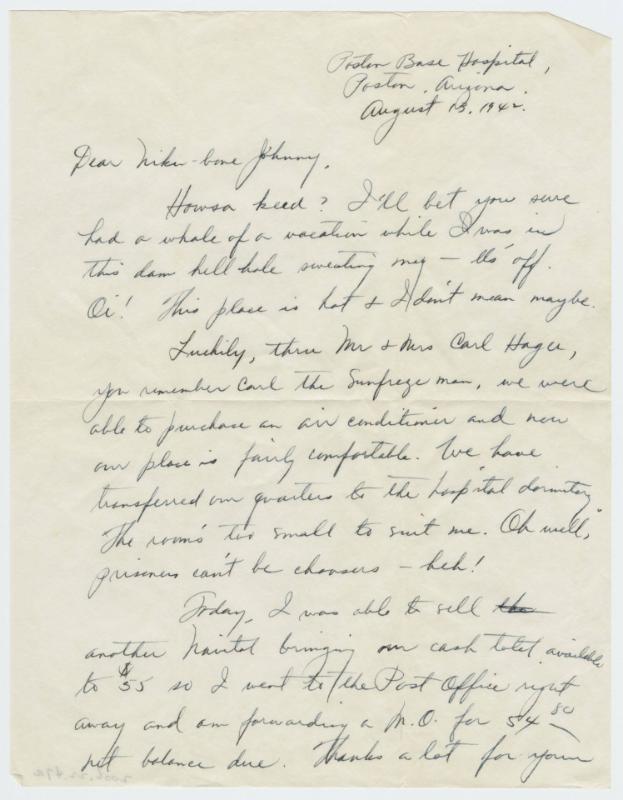 Poston Base Hospital,
Poston, Arizona.
August 13, 1942.
Dear Johnny,
Howsa keed? I'll bet you sure
had a whale of a vacation while I was in
this dam hell hole sweating my — lb's off.
Oi! This place is hot & I don't mean maybe.
Luckily, thru Mr & Mrs Carl Hager,
you remember Carl the Sunfreze man, we were
able to purchase an air conditioner and now
our place is fairly comfortable. We have
transferred our quarters to the hospital dormitory.
The room's too small to suit me. Oh well,
prisoners can't be choosers — heh!
Today, I was able to sell the
another bringing our cash total available
to $55 so I went to the Post Office right
away and am forwarding a M.O. for 54 50
net balance due. Thanks a lot for your